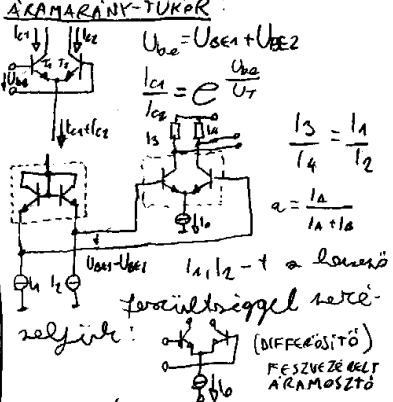 ÁRAMARÁNY-TÜKÖR:
IC1 IC2
Ube = UBE1 + UBE2
T1 T2
Ube
IC1/IC2 = e^(Ube/UT)
IC1+IC2
I3 I4
I3/I4 = I1/I2
a = IA/(IA+IB)
I0
UBE1-UBE2
I1 I2
I1, I2 -t a
feszültséggel
(DIFFERŐSÍTŐ)
FESZVEZÉRELT
ÁRAMOSZTÓ
I0